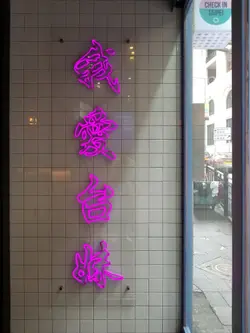 我愛台妹
CHECK IN